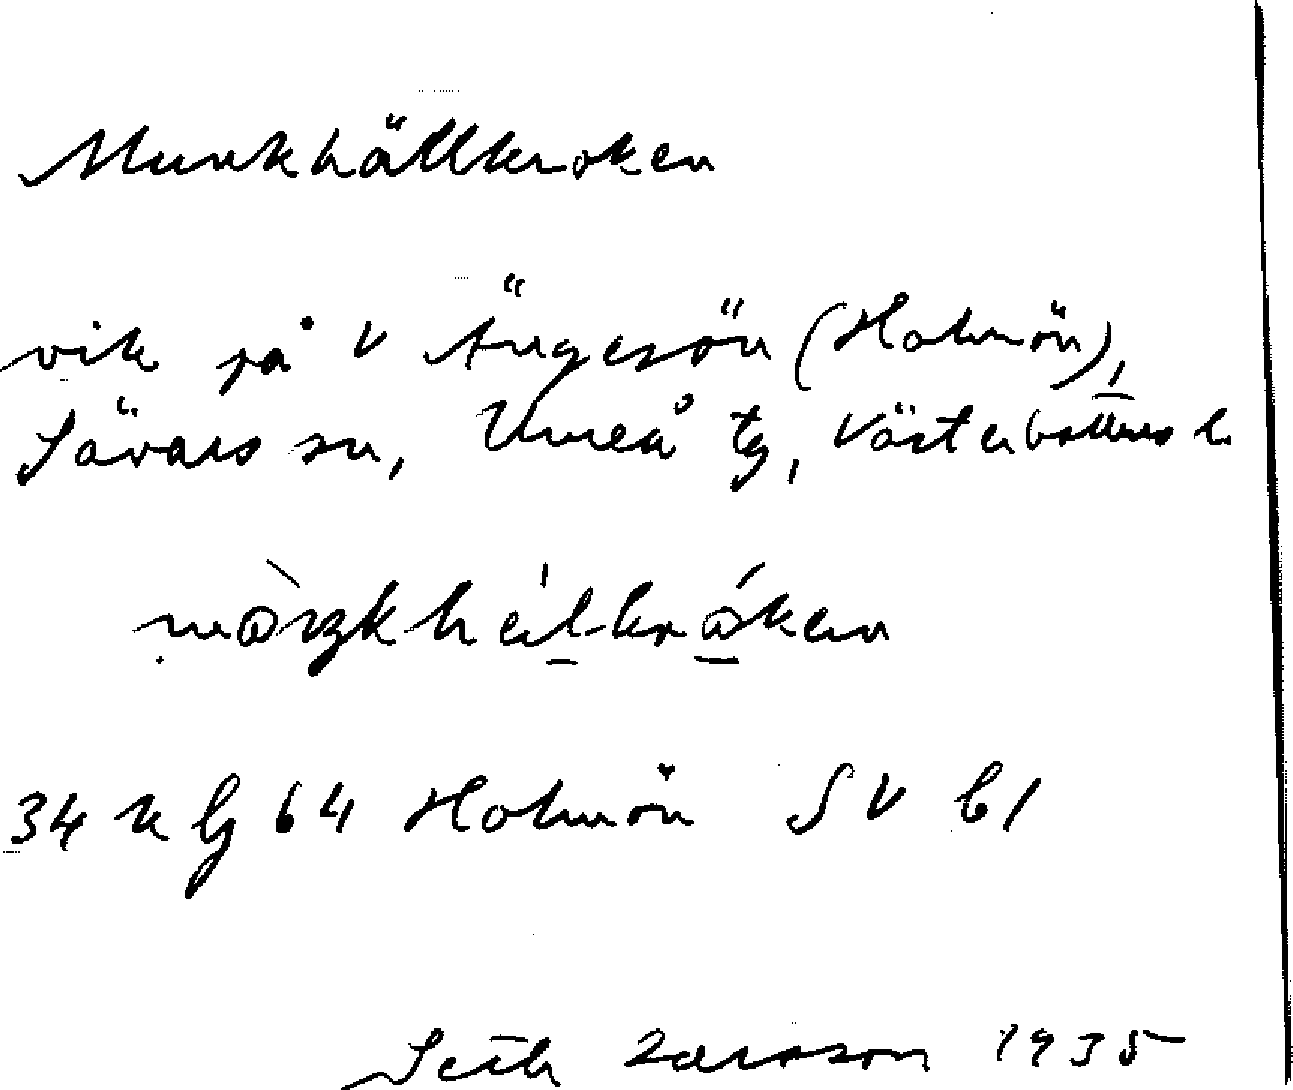 Munkhällkroken
vik på V Ängesön (Holmön),
Sävars sn, Umeå tg, Västerbottens l.
34 n lj 64 Holmön SV bl
Seth Larsson 1935